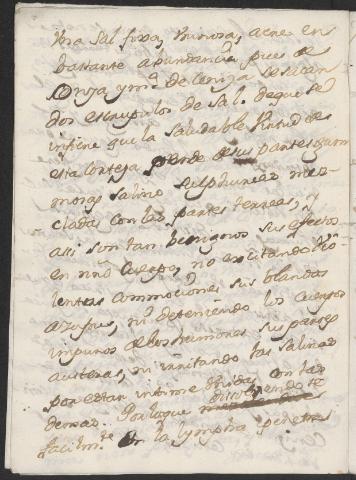 una sal fixa, humosa, acre en
bastante abundancia, pues de
onza y mᵃ de ceniza se sacan
dos escrupulos de sal. de que se
infiere que la saludable virtud de
esta corteza, pende de sus partes gom
mosas salino sulphureas mez
cladas con las partes terreas, y
assi son tan benignos sus efectos
en nrō cuerpo, no excitando vio
lentas commociones sus blandos
azufres, ni deteniendo los cuerpos
impuros de los humores sus partes
austeras, ni irritando las salinas
por estar intime unidas con las
demas. Por lo que disolviendose
facilmᵗᵉ en la lympha, penetra